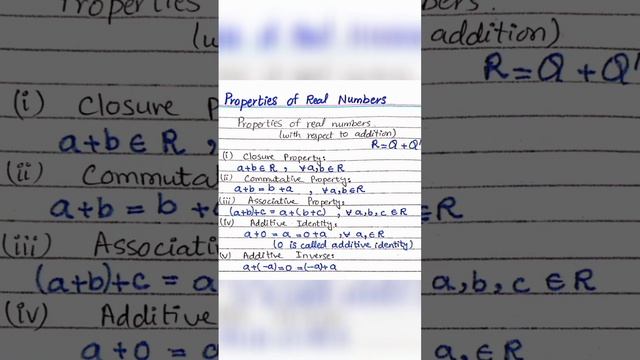 Properties of Real Numbers
Properties of real numbers
(with respect to addition)
R = Q + Q'
(i) Closure Property:
a+b ∈ R , ∀ a,b ∈ R
(ii) Commutative Property:
a+b = b+a , ∀ a,b ∈ R
(iii) Associative Property:
(a+b)+c = a+(b+c) , ∀ a,b,c ∈ R
(iv) Additive Identity:
a+0 = a = 0+a , ∀ a, ∈ R
(0 is called additive identity)
(v) Additive Inverse:
a+(-a) = 0 = (-a)+a